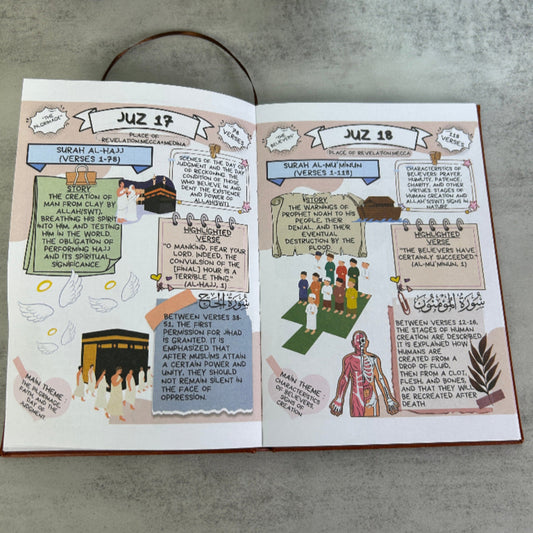 "THE
PILGRIMAGE"
JUZ 17
78
VERSES
PLACE OF
REVELATION:MECCA+MEDINA
SURAH AL-HAJJ
(VERSES 1-78)
SCENES OF THE DAY OF
JUDGMENT AND THE DAY
OF RECKONING, THE
CONDITION OF THOSE
WHO BELIEVE IN AND
DENY THE EXISTENCE
AND POWER OF
ALLAH(SWT).
STORY
THE CREATION OF
MAN FROM CLAY BY
ALLAH(SWT),
BREATHING HIS SPIRIT
INTO HIM, AND TESTING
HIM IN THE WORLD.
THE OBLIGATION OF
PERFORMING HAJJ
AND ITS SPIRITUAL
SIGNIFICANCE
HIGHLIGHTED
VERSE
"O MANKIND, FEAR YOUR
LORD. INDEED, THE
CONVULSION OF THE
[FINAL] HOUR IS A
TERRIBLE THING."
(AL-HAJJ, 1)
سورة الحج
BETWEEN VERSES 38-
51, THE FIRST
PERMISSION FOR JIHAD
IS GRANTED. IT IS
EMPHASIZED THAT
AFTER MUSLIMS ATTAIN
A CERTAIN POWER AND
UNITY, THEY SHOULD
NOT REMAIN SILENT IN
THE FACE OF
OPPRESSION.
MAIN THEME :
THE PILGRIMAGE,
FAITH, AND THE
DAY OF
JUDGMENT
"THE
BELIEVERS"
JUZ 18
118
VERSES
PLACE OF REVELATION:MECCA
SURAH AL-MU'MINUN
(VERSES 1-118)
CHARACTERISTICS OF
BELIEVERS: PRAYER,
HUMILITY, PATIENCE,
CHARITY, AND OTHER
VIRTUES. STAGES OF
HUMAN CREATION AND
ALLAH(SWT) SIGNS IN
NATURE.
STORY
THE WARNINGS OF
PROPHET NOAH TO HIS
PEOPLE, THEIR
DENIAL, AND THEIR
EVENTUAL
DESTRUCTION BY THE
FLOOD
HIGHLIGHTED
VERSE
"THE BELIEVERS HAVE
CERTAINLY SUCCEEDED."
(AL-MU'MINUN, 1)
سورة المؤمنون
BETWEEN VERSES 12-16,
THE STAGES OF HUMAN
CREATION ARE DESCRIBED.
IT IS EXPLAINED HOW
HUMANS ARE
CREATED FROM A
DROP OF FLUID,
THEN FROM A CLOT,
FLESH, AND BONES,
AND THAT THEY WILL
BE RECREATED AFTER
DEATH
MAIN THEME :
CHARACTERISTICS
OF BELIEVERS,
SIGNS OF
CREATION